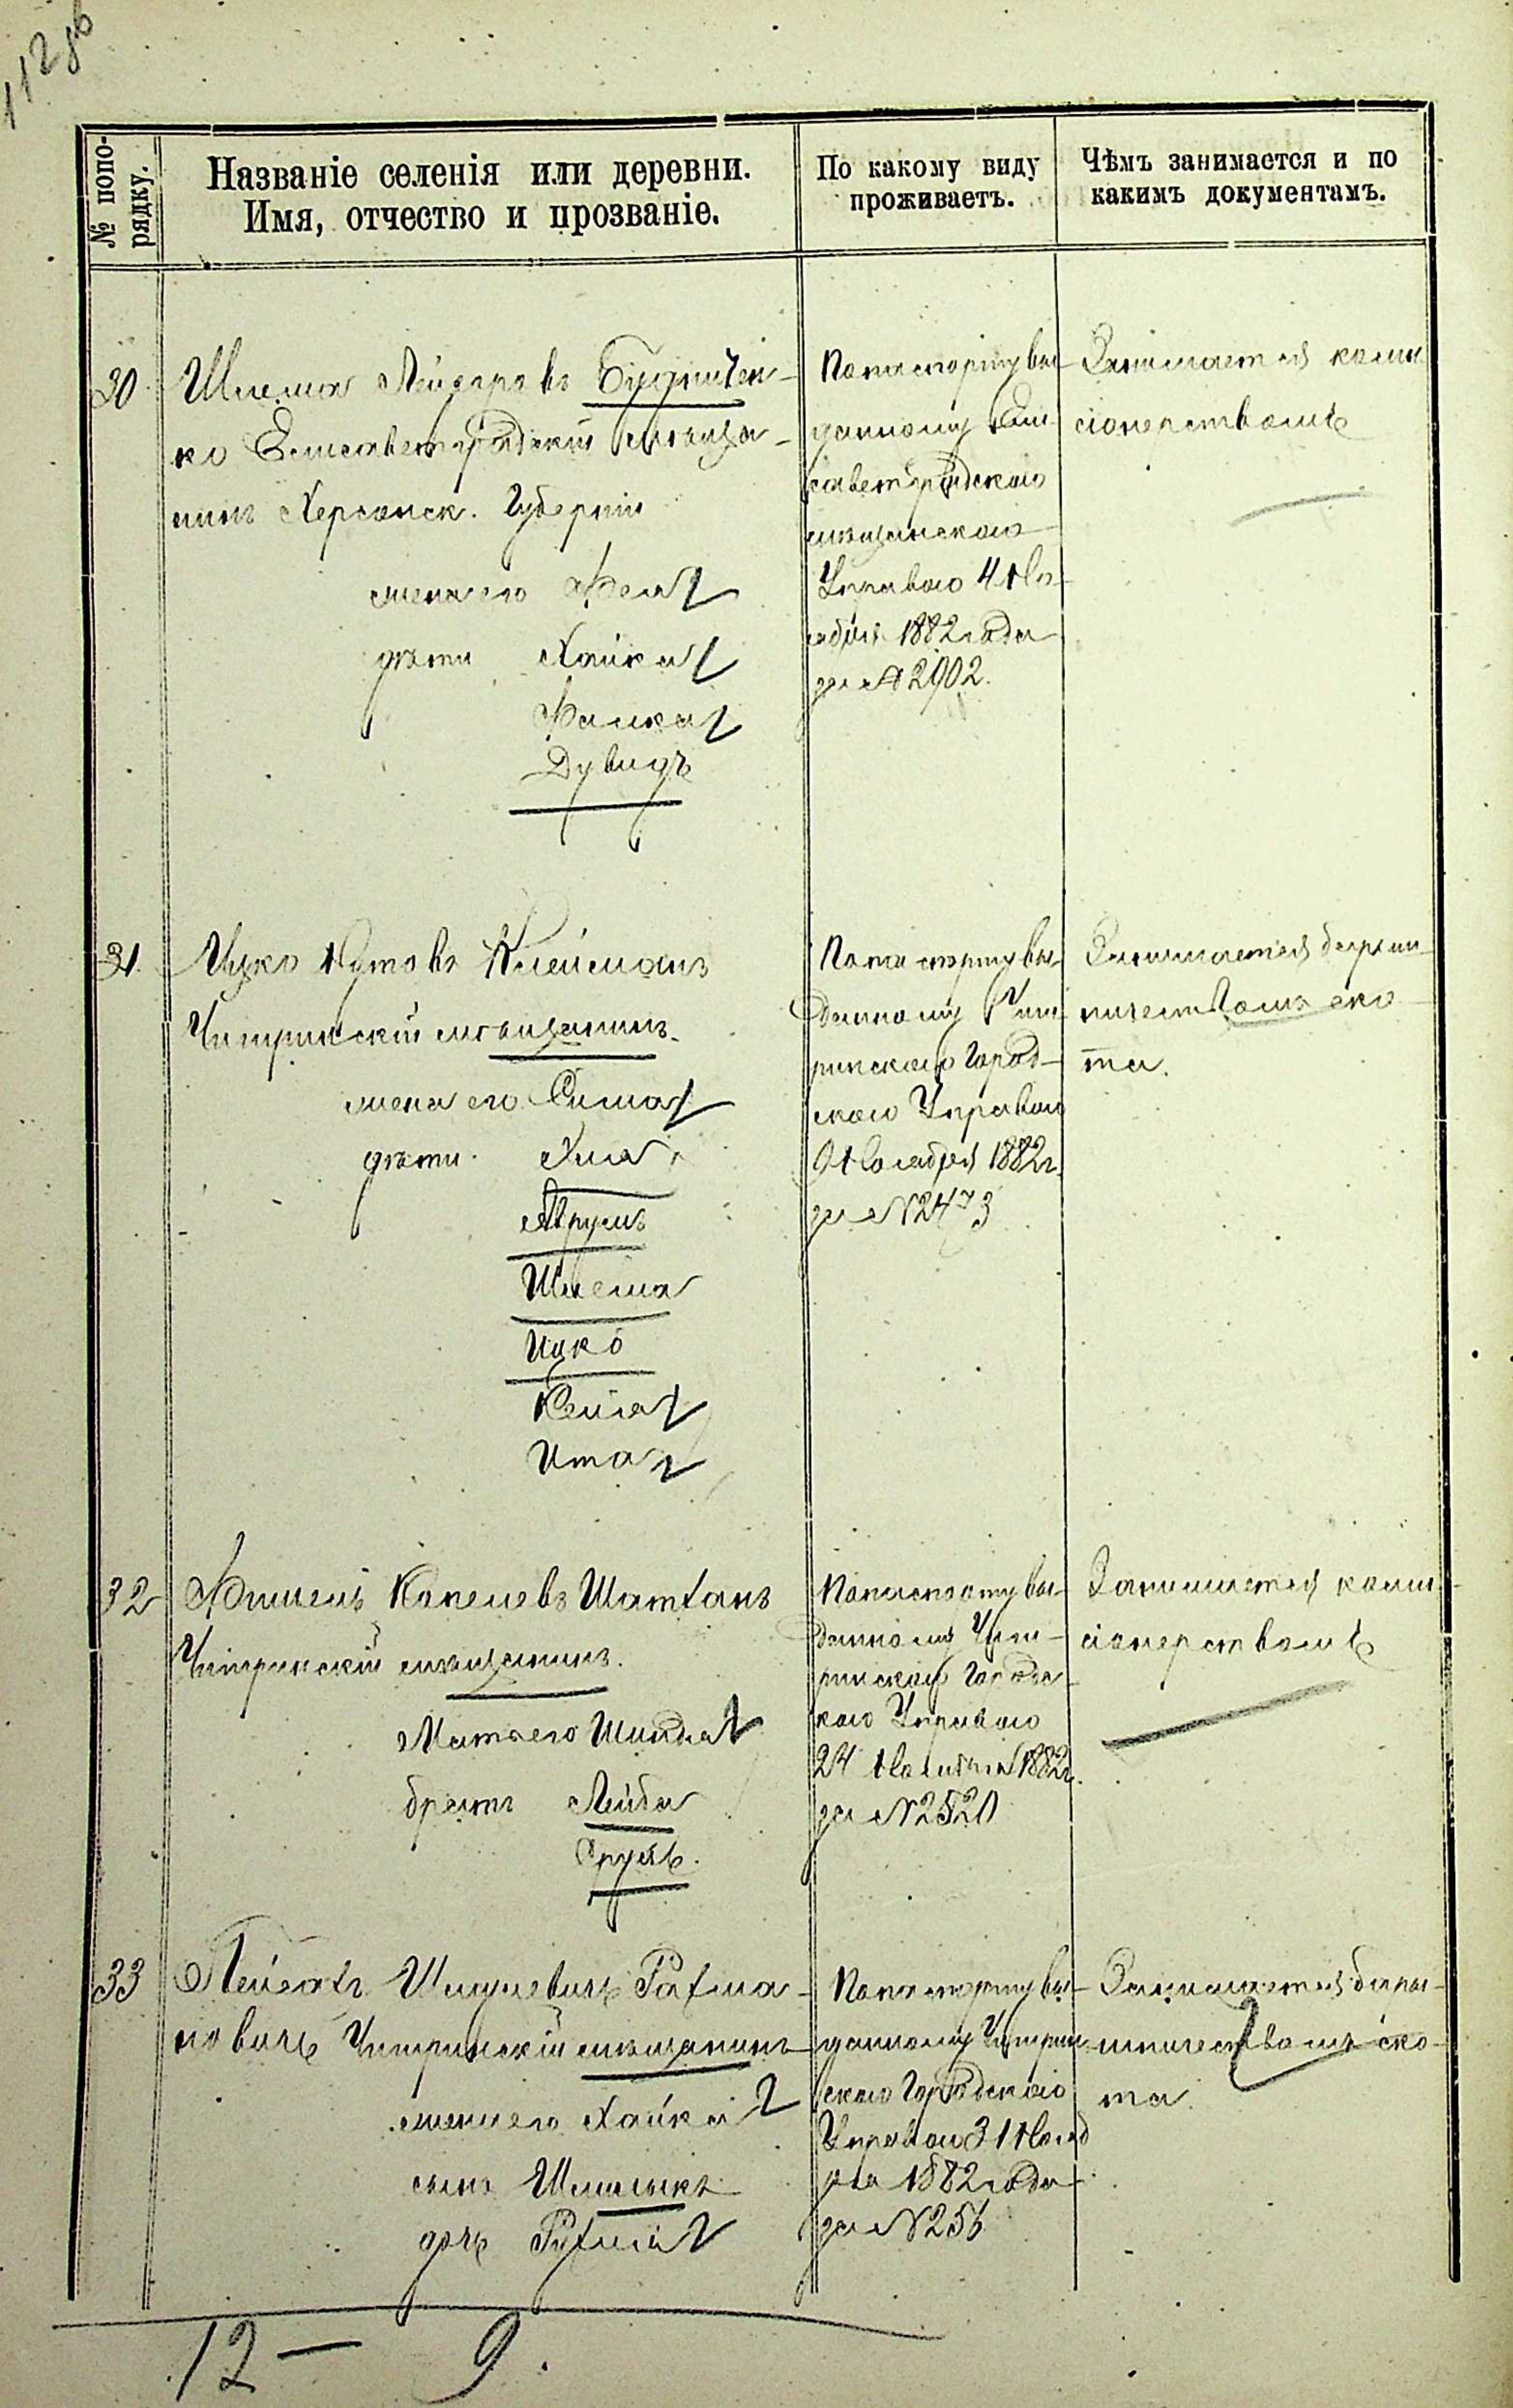 112 об
№ попо-
рядку.
Названіе селенія или деревни.
Имя, отчество и прозваніе.
По какому виду
проживаетъ.
Чѣмъ занимается и по
какимъ документамъ.
30
Шлема Лейзеровъ
ко Елисаветградскій мѣща-
нинъ Херсонск. Губерніи
жена его Фейга
дѣти Хайка
Фанка
Дувидъ
По паспорту вы-
данному Ели-
саветградскаго
мѣщанскаго
Управою 4 Но-
ября 1882 года
за № 2902.
Занимается коми
сіонерствомъ
31.
Ицко Нутовъ Клейманъ
Чигринскій мѣщанинъ.
жена его Сима
дѣти
Аврумъ
Шлема
Ицко
Кейла
Ита
По паспорту вы-
данному Чиги-
ринскаго Город-
скою Управою
9 Ноября 1882 г.
за № 2473
Занимается барыш-
ничествомъ ско-
та.
32
Фишель Копелевъ
Чигринскій мѣщанинъ.
Мать его Шинда
братъ Лейба
Сруль.
По паспорту вы-
данному Чиги-
ринскаго Городс-
кою Управою
24 Ноября 1882 г.
за № 2520
Занимается коми-
сіонерствомъ
33
Шмулевичъ Рахма-
новичъ Чигринскій мѣщанинъ
жена его Хайка
сынъ Шмилыкъ
дочь Рухля
По паспорту вы-
данному Чигрин-
скаго Городскаго
Управою 31 Нояб
ря 1882 года
за № 256
Занимается барыш-
ничествомъ ско-
та.
12 — 9.